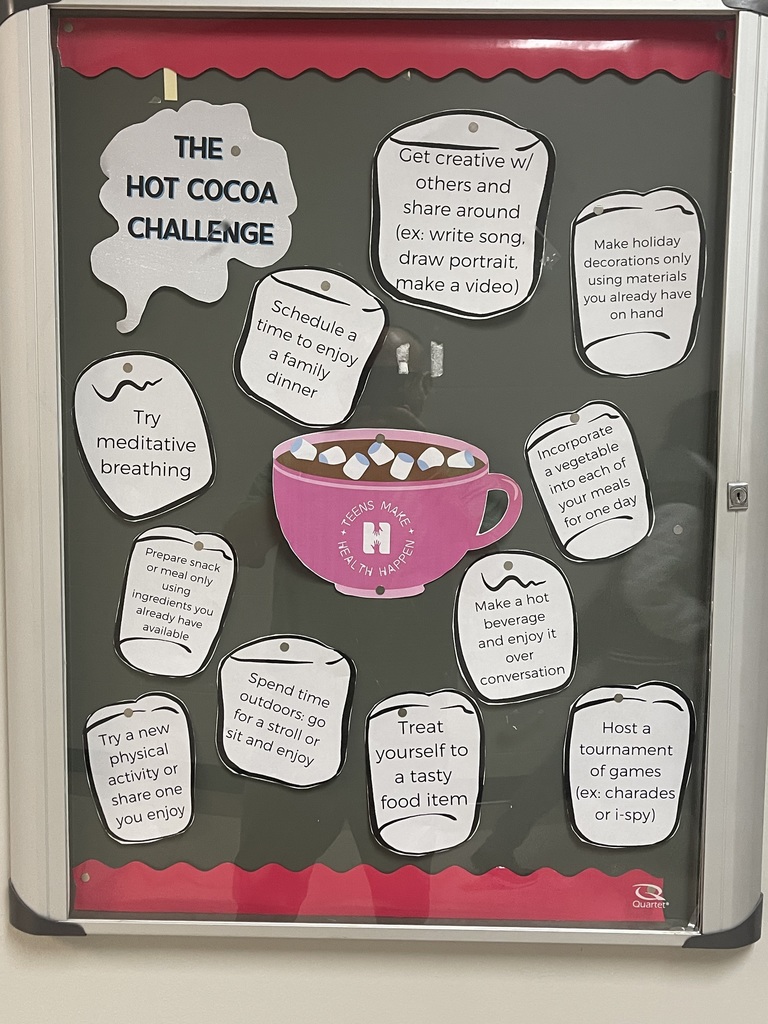 THE
HOT COCOA
CHALLENGE
Get creative w/
others and
share around
(ex: write song,
draw portrait,
make a video)
Make holiday
decorations only
using materials
you already have
on hand
Schedule a
time to enjoy
a family
dinner
Try
meditative
breathing
Incorporate
a vegetable
into each of
your meals
for one day
TEENS MAKE
HEALTH HAPPEN
H
Prepare snack
or meal only
using
ingredients you
already have
available
Make a hot
beverage
and enjoy it
over
conversation
Spend time
outdoors: go
for a stroll or
sit and enjoy
Try a new
physical
activity or
share one
you enjoy
Treat
yourself to
a tasty
food item
Host a
tournament
of games
(ex: charades
or i-spy)
Quartet